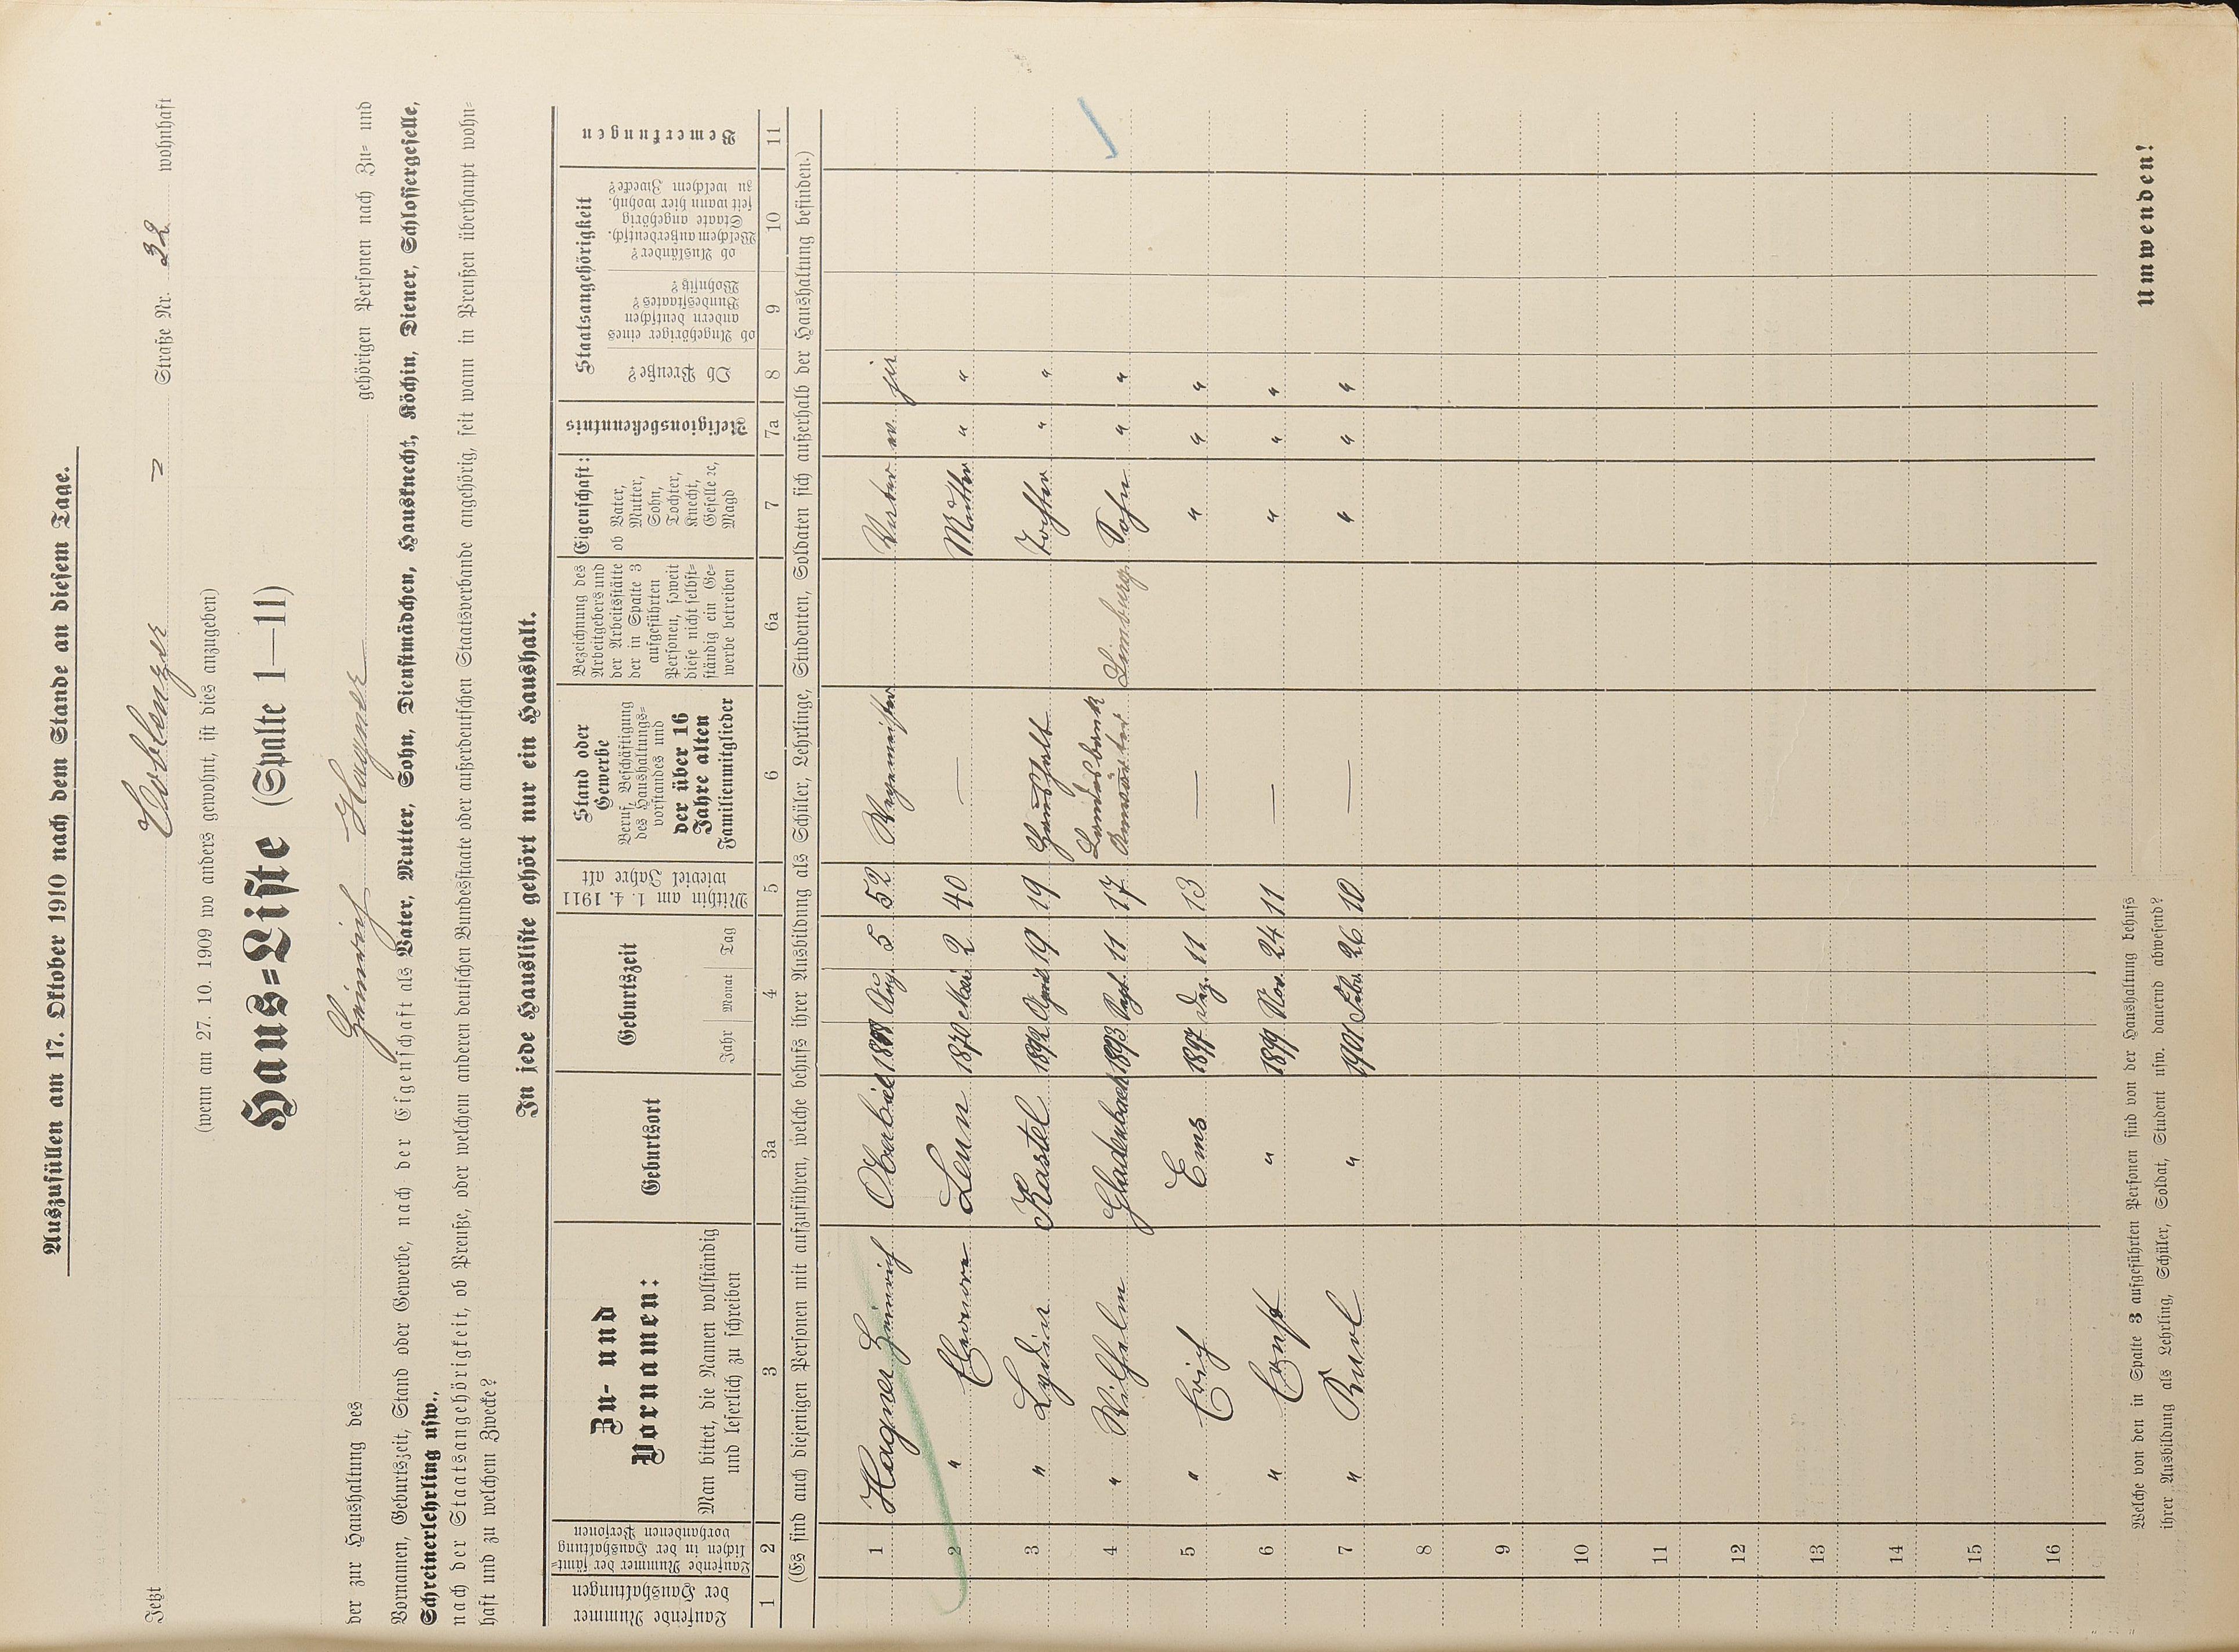 Auszufüllen am 17. Oktober 1910 nach dem Stande an diesem Tage.
Jetzt Coblenzer Straße Nr. 32 wohnhaft
(wenn am 27. 10. 1909 wo anders gewohnt, ist dies anzugeben)
Haus=Liste (Spalte 1—11)
der zur Haushaltung des Heinrich Hagner gehörigen Personen nach Zu= und
Vornamen, Geburtszeit, Stand oder Gewerbe, nach der Eigenschaft als Vater, Mutter, Sohn, Dienstmädchen, Hausknecht, Köchin, Diener, Schlossergeselle,
Schreinerlehrling usw.,
nach der Staatsangehörigkeit, ob Preuße, oder welchem anderen deutschen Bundesstaate oder außerdeutschen Staatsverbande angehörig, seit wann in Preußen überhaupt wohn=
haft und zu welchem Zwecke?
In jede Hausliste gehört nur ein Haushalt.
Laufende Nummer der Haushaltungen
Laufende Nummer der sämt=lichen in der Haushaltung vorhandenen Personen
Zu- und Vornamen:
Man bittet, die Namen vollständig und leserlich zu schreiben
Geburtsort
Geburtszeit
Jahr Monat Tag
Mithin am 1. 4. 1911 wieviel Jahre alt
Stand oder Gewerbe
Beruf, Beschäftigung des Haushaltungs=vorstandes und der über 16 Jahre alten Familienmitglieder
Bezeichnung des Arbeitgebers und der Arbeitsstätte der in Spalte 3 aufgeführten Personen, soweit diese nicht selbst=ständig ein Ge=werbe betreiben
Eigenschaft:
ob Vater, Mutter, Sohn, Tochter, Knecht, Geselle ꝛc, Magd
Religionsbekenntnis
Staatsangehörigkeit
Ob Preuße?
ob Angehöriger eines andern deutschen Bundesstaates? Wohnsitz?
ob Ausländer? Welchem außerdeutsch. Staate angehörig seit wann hier wohnh. zu welchem Zwecke?
Bemerkungen
1 2 3 3a 4 5 6 6a 7 7a 8 9 10 11
(Es sind auch diejenigen Personen mit aufzuführen, welche behufs ihrer Ausbildung als Schüler, Lehrlinge, Studenten, Soldaten sich außerhalb der Haushaltung befinden.)
1 Hagner Heinrich Oberbiel Aug. 5 52 Wegemeister Vater ev. ja
2 " Eleonore Leun 1870 Mai 2 40 — Mutter " "
3 " Lydia Kastel 1892 April 19 19 Haushalt Tochter " "
4 " Wilhelm Gladenbach 1893 Sept. 11 17 Landesbank Anwärter Limburg Sohn " "
5 " Erich Ems 1897 Dez. 11 13 — " " "
6 " Ernst " 1899 Nov. 24 11 — " " "
7 " Karl " 1901 Febr. 26 10 — " " "
8
9
10
11
12
13
14
15
16
Welche von den in Spalte 3 aufgeführten Personen sind von der Haushaltung behufs
ihrer Ausbildung als Lehrling, Schüler, Soldat, Student usw. dauernd abwesend?
Umwenden!